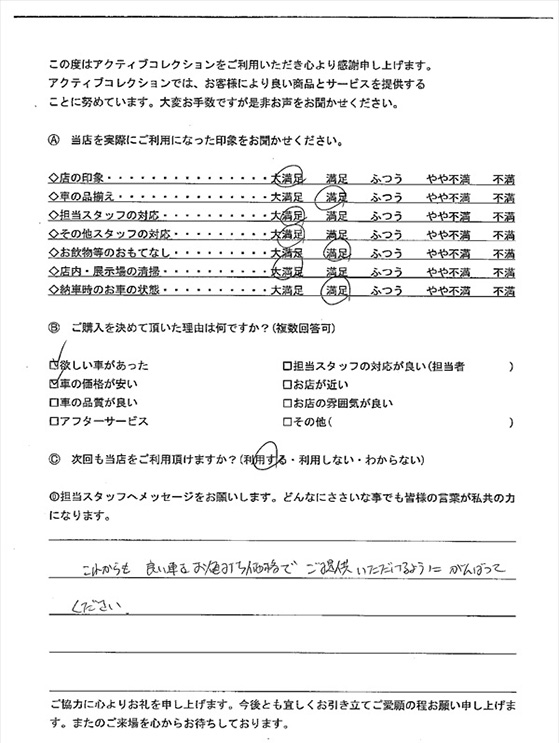 この度はアクティブコレクションをご利用いただき心より感謝申し上げます。
アクティブコレクションでは、お客様により良い商品とサービスを提供する
ことに努めています。大変お手数ですが是非お声をお聞かせください。
Ⓐ 当店を実際にご利用になった印象をお聞かせください。
◇店の印象・・・・・・・・・・・・・・・大満足 満足 ふつう やや不満 不満
◇車の品揃え・・・・・・・・・・・・・・大満足 満足 ふつう やや不満 不満
◇担当スタッフの対応・・・・・・・・・・大満足 満足 ふつう やや不満 不満
◇その他スタッフの対応・・・・・・・・・大満足 満足 ふつう やや不満 不満
◇お飲物等のおもてなし・・・・・・・・・大満足 満足 ふつう やや不満 不満
◇店内・展示場の清掃・・・・・・・・・・大満足 満足 ふつう やや不満 不満
◇納車時のお車の状態・・・・・・・・・・大満足 満足 ふつう やや不満 不満
Ⓑ ご購入を決めて頂いた理由は何ですか?(複数回答可)
☑欲しい車があった □担当スタッフの対応が良い(担当者 )
☑車の価格が安い □お店が近い
□車の品質が良い □お店の雰囲気が良い
□アフターサービス □その他( )
Ⓒ 次回も当店をご利用頂けますか?(利用する・利用しない・わからない)
Ⓓ担当スタッフへメッセージをお願いします。どんなにささいな事でも皆様の言葉が私共の力
になります。
これからも 良い車を お値打ち価格で ご提供 いただけるように がんばって
ください.
ご協力に心よりお礼を申し上げます。今後とも宜しくお引き立てご愛顧の程お願い申し上げま
す。またのご来場を心からお待ちしております。